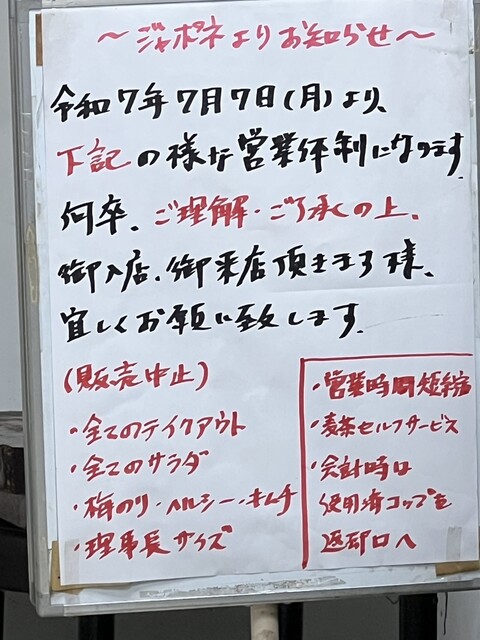 ～ジャポネよりお知らせ～
令和7年7月7日(月)より、
下記の様な営業体制になります。
何卒、ご理解・ご了承の上、
御入店、御来店頂きます様、
宜しくお願い致します。
(販売中止)
・全てのテイクアウト
・全てのサラダ
・梅のり・ヘルシー・キムチ
・理事長サイズ
・営業時間短縮
・麦茶セルフサービス
・会計時は
使用済コップを
返却口へ